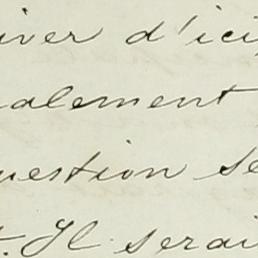 iver d'ici
alement
uestion se
. Il serai